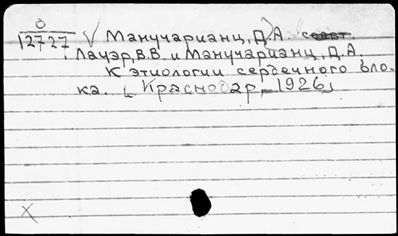 0
12727
Манучарианц, Д.А. соавт.
Лауэр, В.В. и Манучарианц, Д.А.
К этиологии сердечного бло-
ка. Краснодар, 1926.
X